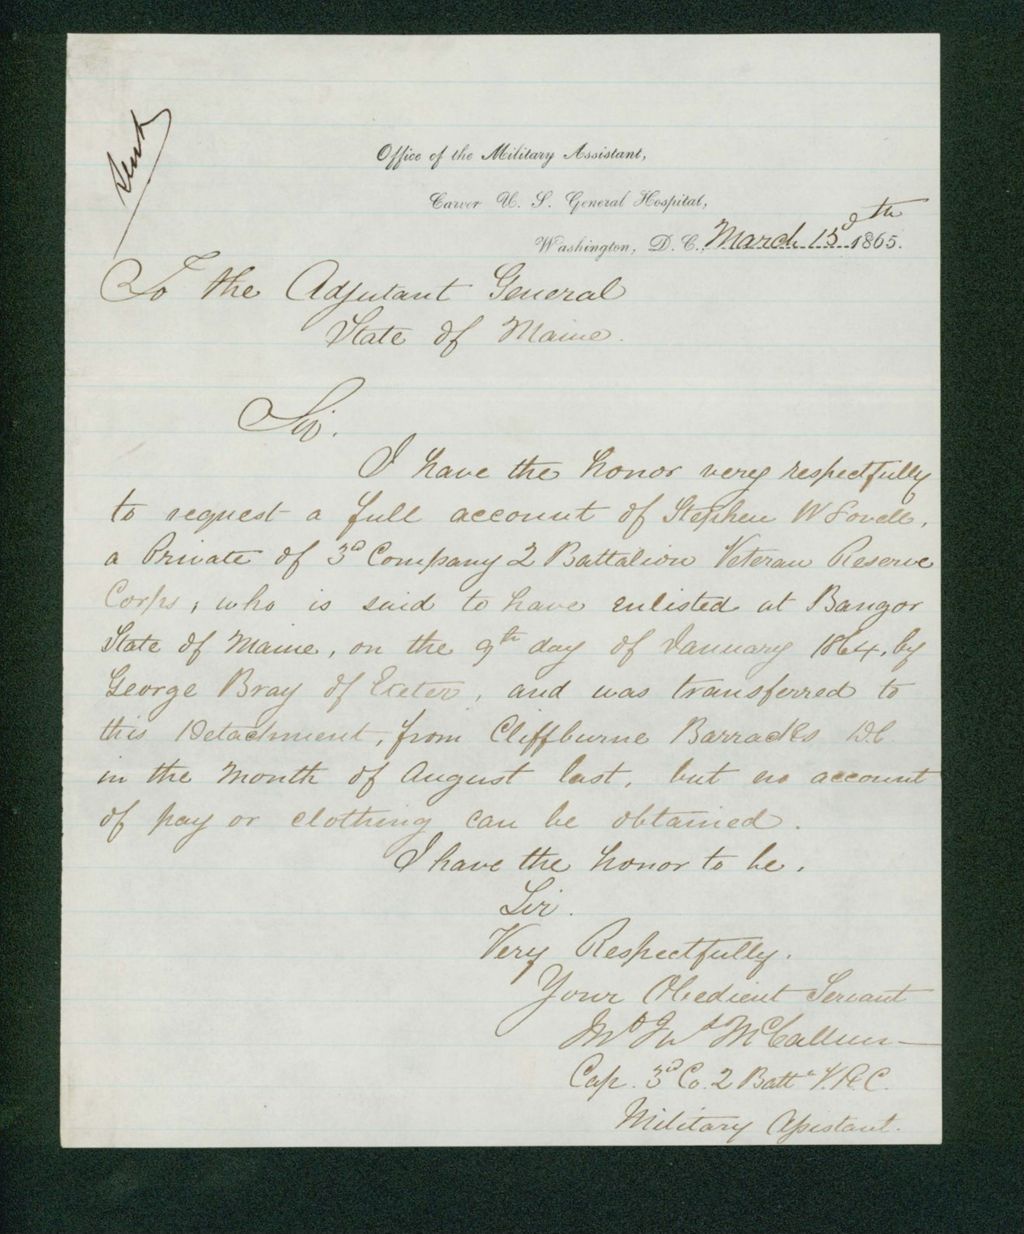 Sent
Office of the Military Assistant,
Carver U. S. General Hospital,
Washington, D. C., March 13th 1865.
To the Adjutant General
State of Maine.
Sir.
I have the honor very respectfully
to request a full account of Stephen W Lovell,
a Private of 3d Company 2 Battalion Veteran Reserve
Corps, who is said to have enlisted at Bangor
State of Maine, on the 9th day of January 1864, by
George Bray of Exeter, and was transferred to
this Detachment, from Cliffburne Barracks D.C.
in the Month of August last, but no account
of pay or clothing can be obtained.
I have the honor to be,
Sir.
Very Respectfully,
Your Obedient Servant
McCallum
Cap. 3d Co. 2 Battn V.R.C.
Military Assistant.